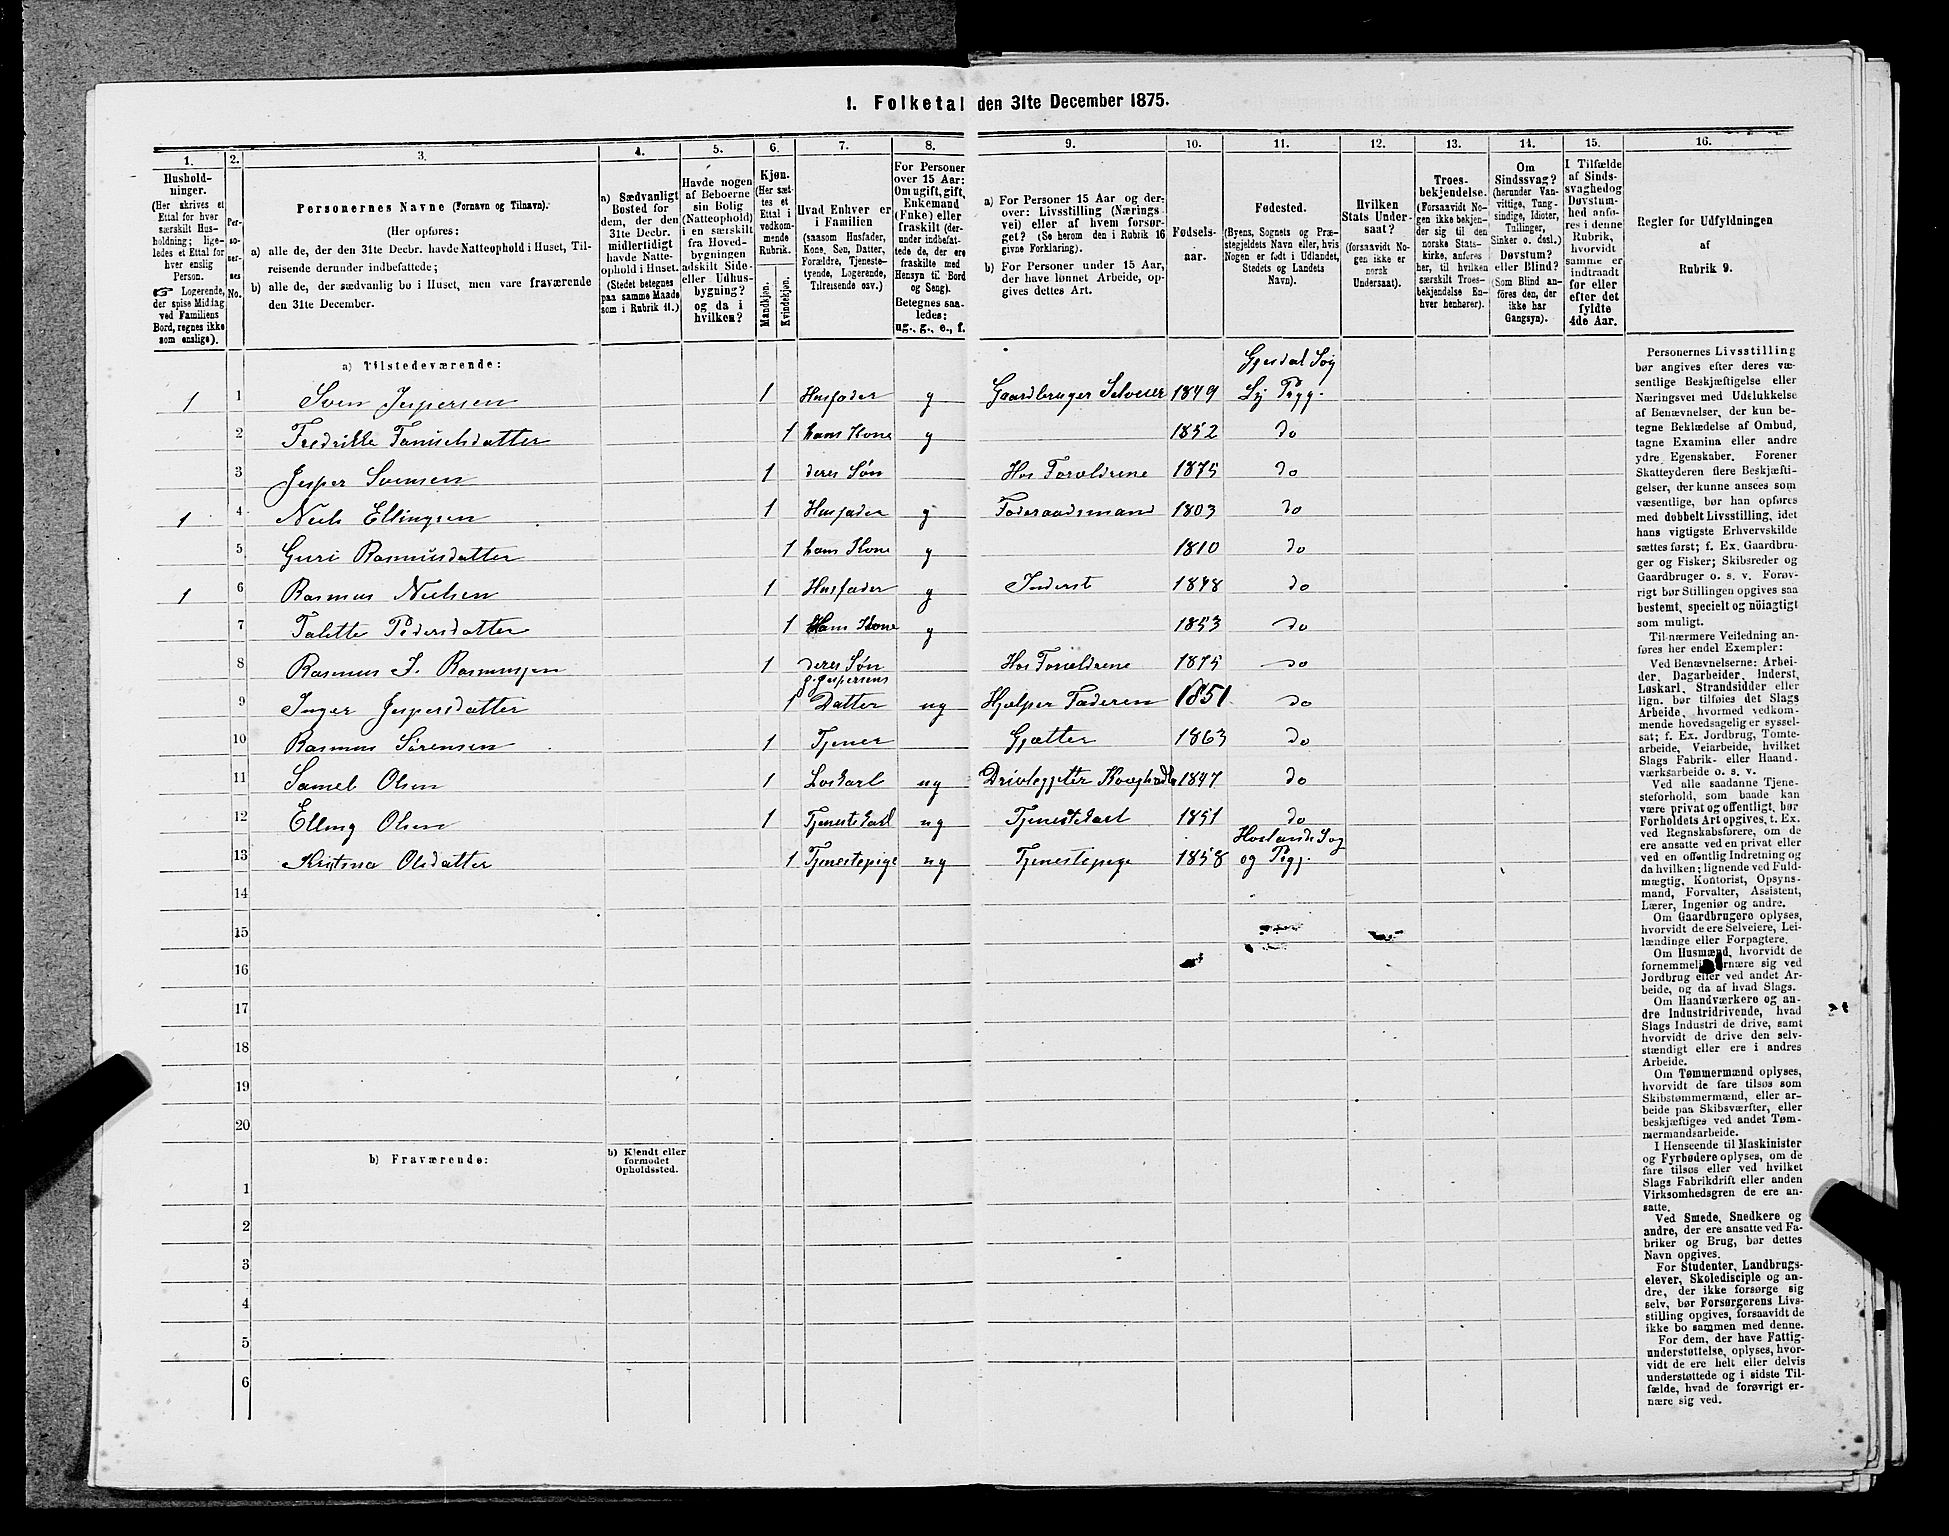 1. Folketal den 31te December 1875.
1. 2. 3. 4. 5. 6. 7. 8. 9. 10. 11. 12. 13. 14. 15. 16.
Hushold-
ninger.
(Her skrives et
Ettal for hver
særskilt Hus-
holdning; lige-
ledes et Ettal for
hver enslig
Person.
☞ Logerende,
der spise Middag
ved Familiens
Bord, regnes ikke
som enslige).
Per-
so-
ner-
nes
No.
Personernes Navne (Fornavn og Tilnavn).
(Her opføres:
a) alle de, der den 31te Decbr. havde Natteophold i Huset, Til-
reisende derunder indbefattede;
b) alle de, der sædvanlig bo i Huset, men vare fraværende
den 31te December.
a) Sædvanligt
Bosted for
dem, der den
31te Decbr.
midlertidigt
havde Natte-
ophold i Huset.
(Stedet betegnes
paa samme Maade
som i Rubrik 11.)
Havde nogen
af Beboerne
sin Bolig
(Natteophold)
i en særskilt
fra Hoved-
bygningen
adskilt Side-
eller Udhus-
bygning?
og da i
hvilken?
Kjøn.
(Her sæt-
tes et
Ettal i
vedkom-
mende
Rubrik.)
Mandkjøn.
Kvindekjøn.
Hvad Enhver er
i Familien
(saasom Husfader,
Kone, Søn, Datter,
Forældre, Tjeneste-
tyende, Logerende,
Tilreisende osv.)
For Personer
over 15 Aar:
Om ugift, gift,
Enkemand
(Enke) eller
fraskilt (der-
under indbefat-
tede de, der ere
fraskilte med
Hensyn til Bord
og Seng).
Betegnes saa-
ledes:
ug., g., e., f.
a) For Personer 15 Aar og der-
over: Livsstilling (Nærings-
vei) eller af hvem forsør-
get? (Se herom den i Rubrik 16
givne Forklaring).
b) For Personer under 15 Aar,
der have lønnet Arbeide, op-
gives dettes Art.
Fødsels-
aar.
Fødested.
(Byens, Sognets og Præ-
stegjeldets Navn eller, hvis
Nogen er født i Udlandet,
Stedets og Landets
Navn).
Hvilken
Stats Under-
saat?
(forsaavidt No-
gen ikke er
norsk
Undersaat).
Troes-
bekjendelse.
(Forsaavidt No-
gen ikke bekjen-
der sig til den
norske Stats-
kirke, anføres
her, til hvilken
særskilt Troes-
bekjendelse En-
hver henhører).
Om
Sindssvag?
(herunder Van-
vittige, Tung-
sindige, Idioter,
Tullinger,
Sinker o. desl.).
Døvstum?
eller Blind?
(Som Blind an-
føres den, der
ikke har
Gangsyn).
I Tilfælde
af Sinds-
svaghed og
Døvstum-
hed anfø-
res i denne
Rubrik,
hvorvidt
samme er
indtraadt
før eller
efter det
fyldte
4de Aar.
Regler for Udfyldningen
af
Rubrik 9.
a) Tilstedeværende:
Gjesdal Sog
1 1 Sven Jespersen 1 Husfader g Gaardbruger Selveier 1849 Ly Pgg.
2 Fredrikke Tanielsdatter 1 hans Kone g 1852 do
3 Jesper Svensen 1 deres Søn Hos Foreldrene 1875 do
1 4 Niels Ellingsen 1 Husfader g Foderaadsmand 1803 do
5 Guri Rasmusdatter 1 hans Kone g 1810 do
1 6 Rasmus Nielsen 1 Husfader g Inderst 1848 do
7 Talette Pedersdatter 1 Hans Kone g 1853 do
8 Rasmus J. Rasmussen 1 deres Søn Hos Foreldrene 1875 do
9 Inger Jespersdatter 1 Jespersens Datter ug Hjelper Faderen 1851 do
10 Rasmus Sørensen 1 Tjener Gjætter 1863 do
11 Samel Olsen 1 Løskarl ug 1847 do
12 Elling Olsen 1 Tjenestekarl ug Tjenestekarl 1851 do
Hoslands Sog
13 Kristna Olsdatter 1 Tjenestepige ug Tjenestepige 1858 og Pgj.
14
15
16
17
18
19
20
b) Fraværende:
b) Kjendt eller
formodet
Opholdssted.
1
2
3
4
5
6
Personernes Livsstilling
bør angives efter deres væ-
sentlige Beskjæftigelse eller
Næringsvei med Udelukkelse
af Benævnelser, der kun be-
tegne Beklædelse af Ombud,
tagne Examina eller andre
ydre Egenskaber. Forener
Skatteyderen flere Beskjæfti-
gelser, der kunne ansees som
væsentlige, bør han opføres
med dobbelt Livsstilling, idet
hans vigtigste Erhvervskilde
sættes først; f. Ex. Gaardbru-
ger og Fisker; Skibsreder og
Gaardbruger o. s. v. Forøv-
rigt bør Stillingen opgives saa
bestemt, specielt og nöiagtigt
som muligt.
Til nærmere Veiledning an-
føres her endel Exempler:
Ved Benævnelserne: Arbei-
der, Dagarbeider, Inderst,
Løskarl, Strandsidder eller
lign. bør tilføies det Slags
Arbeide, hvormed vedkom-
mende hovedsagelig er syssel-
sat; f. Ex. Jordbrug, Tomte-
arbeide, Veiarbeide, hvilket
Slags Fabrik- eller Haand-
værksarbeide o. s. v.
Ved alle saadanne Tjene-
steforhold, som baade kan
være privat og offentligt, bør
Forholdets Art opgives, t. Ex.
ved Regnskabsførere, om de
ere ansatte ved en privat eller
ved en offentlig Indretning og
da hvilken; lignende ved Fuld-
mægtig, Kontorist, Opsyns-
mand, Forvalter, Assistent,
Lærer, Ingeniør og andre.
Om Gaardbrugere oplyses,
hvorvidt de ere Selveiere, Lei-
lændinge eller Forpagtere.
Om Husmænd, hvorvidt de
fornemmelig ernære sig ved
Jordbrug eller ved andet Ar-
beide, og da af hvad Slags.
Om Haandværkere og an-
dre Industridrivende, hvad
Slags Industri de drive, samt
hvorvidt de drive den selv-
stændigt eller ere i andres
Arbeide.
Om Tømmermænd oplyses,
hvorvidt de fare tilsøs som
Skibstømmermænd, eller ar-
beide paa Skibsværfter, eller
beskjæftiges ved andet Tøm-
mermandsarbeide.
I Henseende til Maskinister
og Fyrbødere oplyses, om de
fare tilsøs eller ved hvilket
Slags Fabrikdrift eller anden
Virksomhedsgren de ere an-
satte.
Ved Smede, Snedkere og
andre, der ere ansatte ved Fa-
briker og Brug, bør dettes
Navn opgives.
For Studenter, Landbrugs-
elever, Skoledisciple og an-
dre, der ikke forsørge sig
selv, bør Forsørgerens Livs-
stilling opgives, forsaavidt de
ikke bo sammen med denne.
For dem, der have Fattig-
understøttelse, oplyses, hvor-
vidt de ere helt eller delvis
understøttede og i sidste Til-
fælde, hvad de forøvrigt er-
nære sig ved.